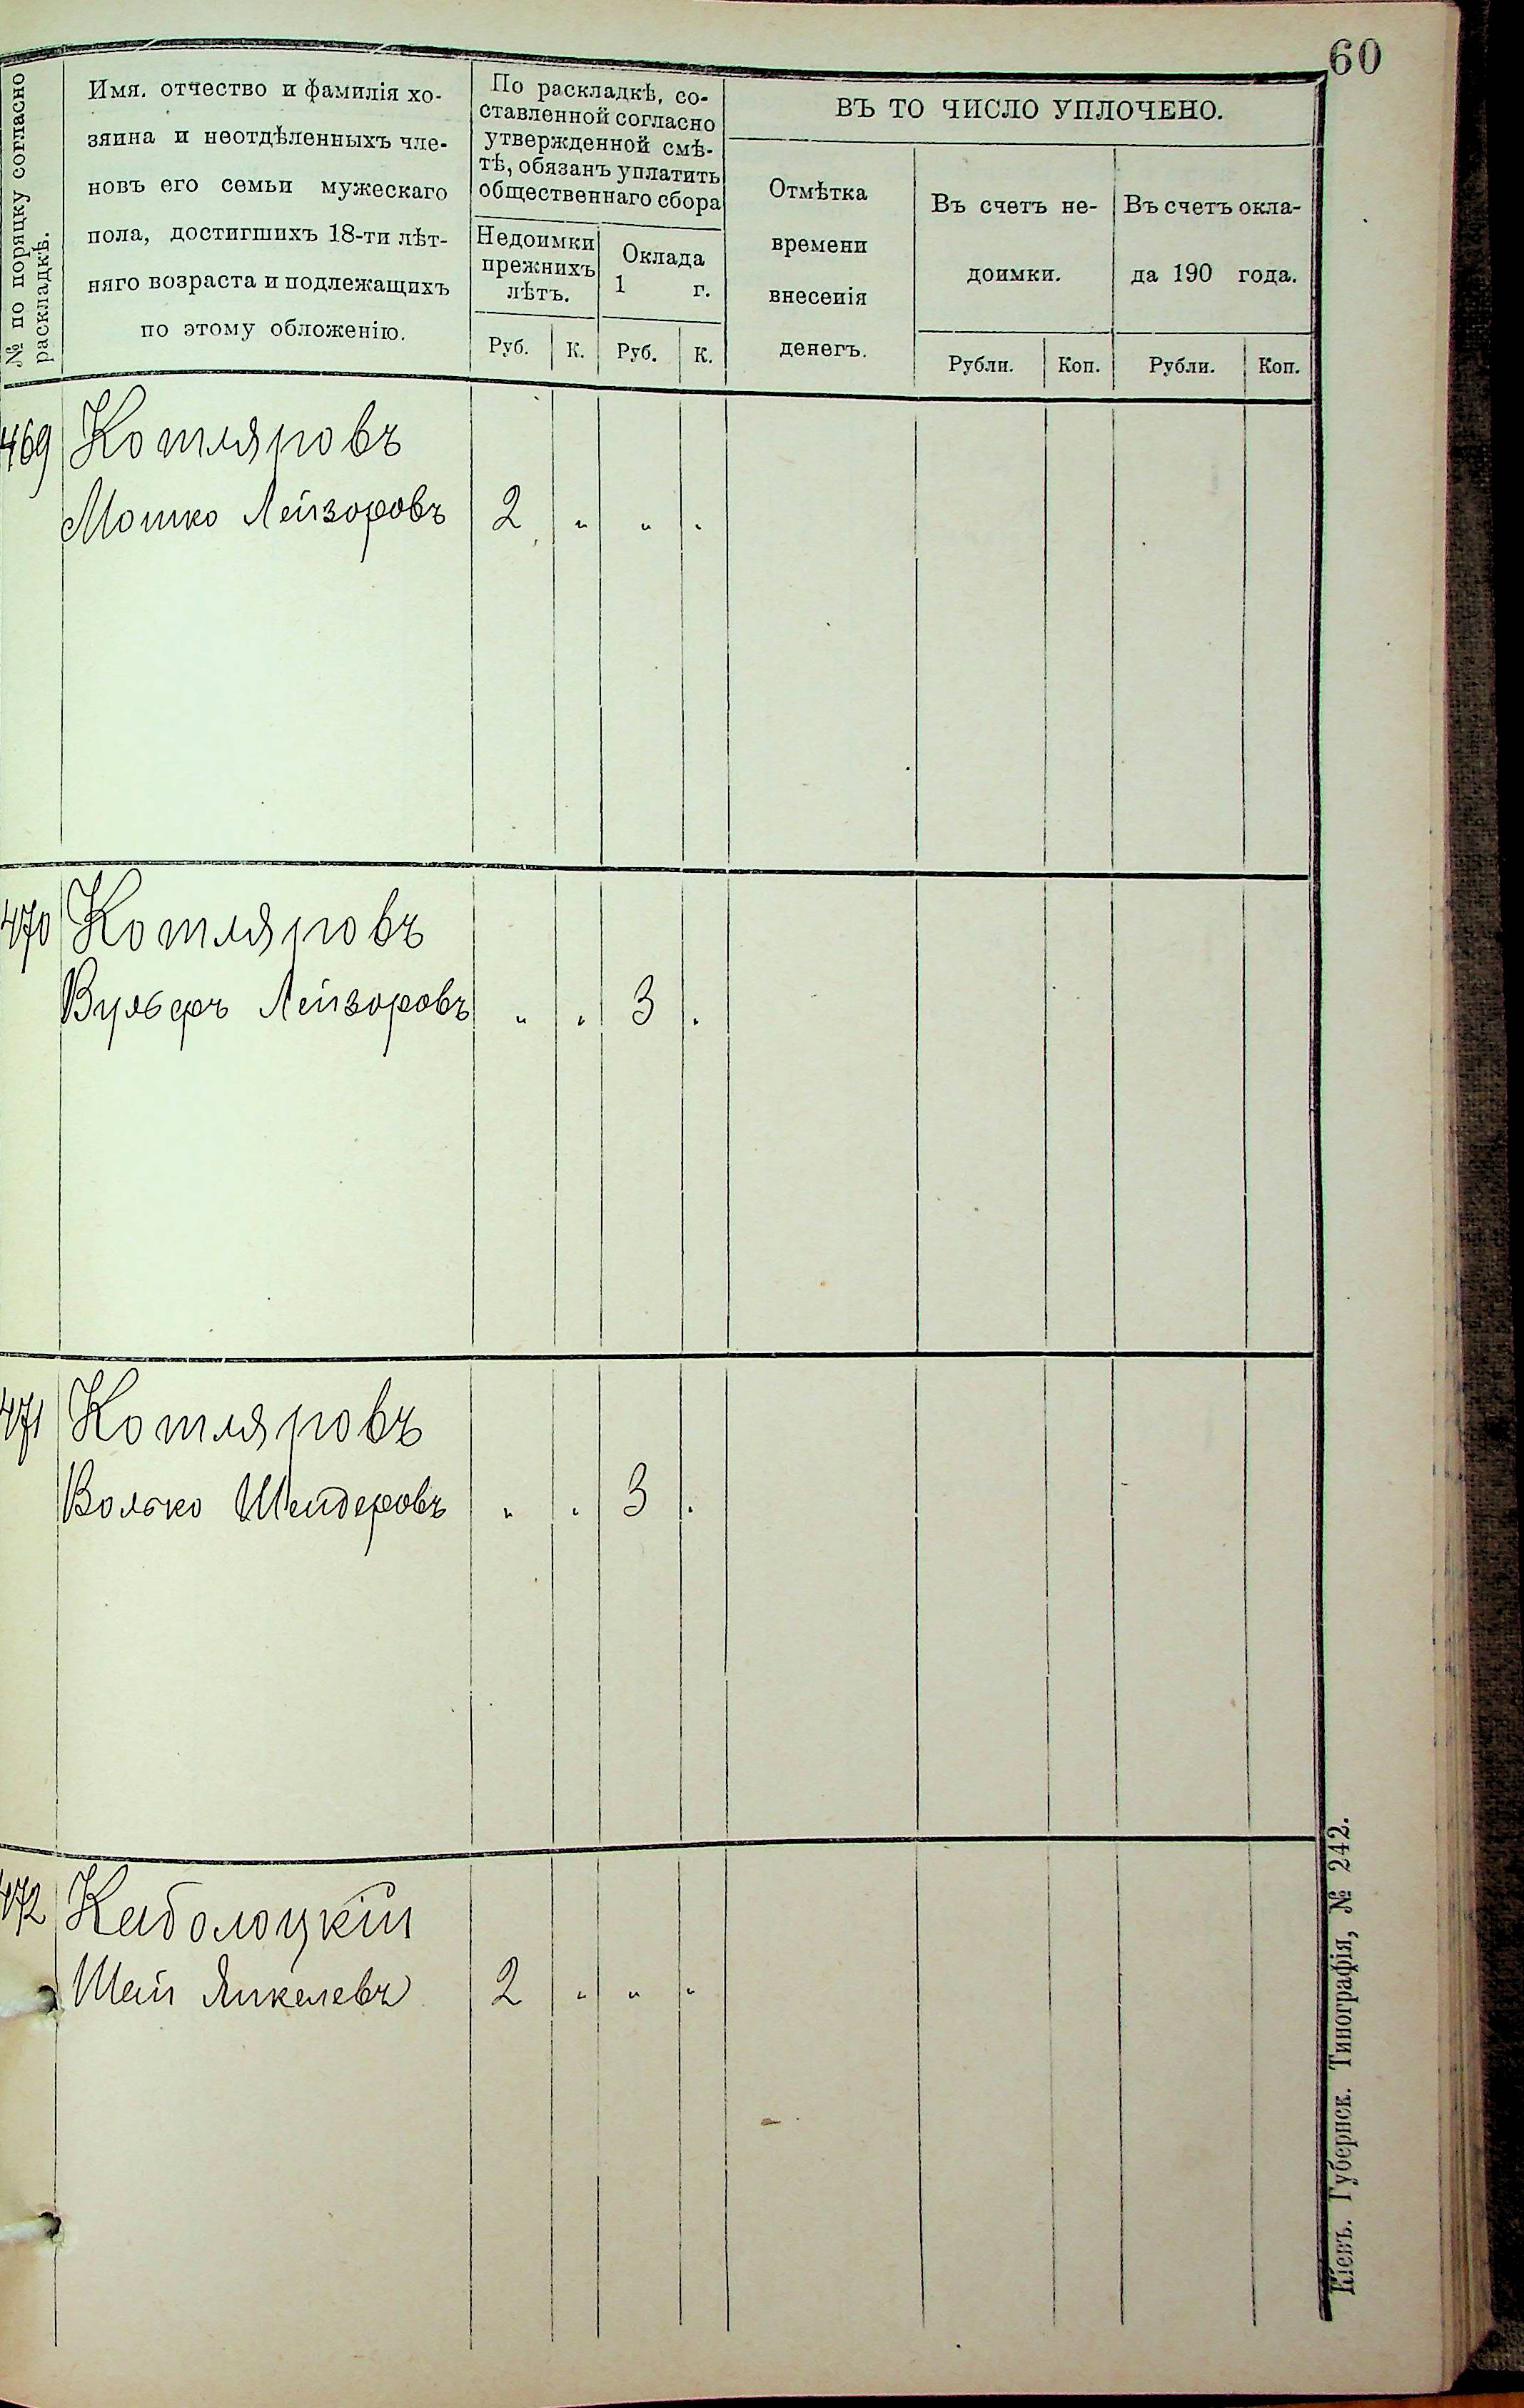 60
№ по поряцку согласно
раскладкѣ.
Имя. отчество и фамилія хо-
зяина и неотдѣленныхъ чле-
новъ его семьи мужескаго
пола, достигшихъ 18-ти лѣт-
няго возраста и подлежащихъ
по этому обложенію.
По раскладкѣ, со-
ставленной согласно
утвержденной смѣ-
тѣ, обязанъ уплатить
общественнаго сбора
Недоимки
прежнихъ
лѣтъ.
Оклада
1 г.
Руб. К. Руб. К.
ВЪ ТО ЧИСЛО УПЛОЧЕНО.
Отмѣтка
времени
внесенія
денегъ.
Въ счетъ не-
доимки.
Въ счетъ окла-
да 190 года.
Рубли. Коп. Рубли. Коп.
469 Котляровъ
Мошко Лейзоровъ 2 „ „ „
470 Котляровъ
Вульфъ Лейзоровъ „ „ 3 „
471 Котляровъ
Волько Шендеровъ „ „ 3 „
472 Каболоцкій
Шай Янкелевъ 2 „ „ „
Кіевъ. Губернск. Типографія, № 242.